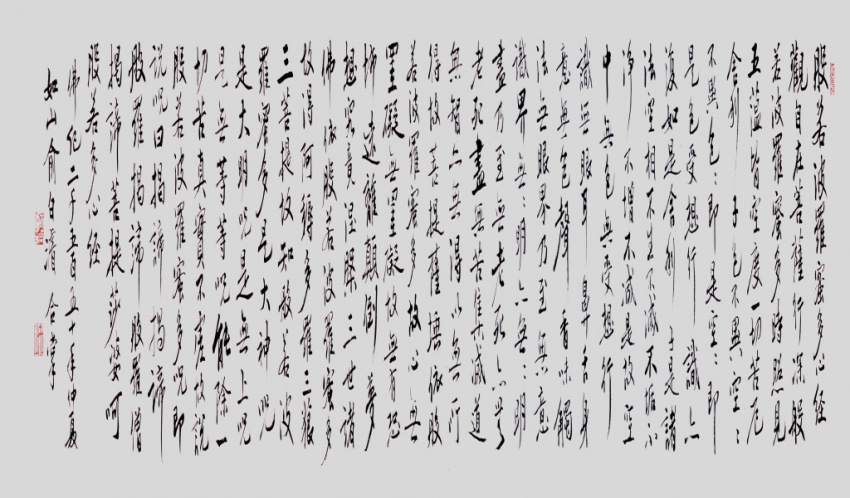 般若波羅蜜多心經
觀自在菩薩行深般
若波羅蜜多時照見
五蘊皆空度一切苦厄
舍利子色不異空:
不異色:即是空:即
是色受想行識亦
復如是舍利子是諸
法空相不生不滅不垢不
淨不增不減是故空
中無色無受想行
識無眼耳鼻舌身
意無色聲香味觸
法無眼界乃至無意
識界無無:明亦無無:明
盡乃至無老死亦無
老死盡無苦集滅道
無智亦無得以無所
得故菩提薩埵依般
若波羅蜜多故心無
罣礙無罣礙故無有恐
怖遠離顛倒夢
想究竟涅槃三世諸
佛依般若波羅蜜多
故得阿耨多羅三藐
三菩提故知般若波
羅蜜多是大神咒
是大明咒是無上咒
是無等等咒能除一
切苦真實不虛故說
般若波羅蜜多咒即
說咒曰揭諦揭諦
般羅揭諦般羅僧
揭諦菩提莎婆呵
般若多心經
佛紀二千五百五十年仲夏
如山俞白濤合掌